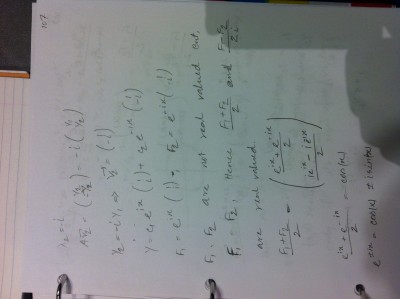 107
λ₂ = -i
A v⃗₂ = (y₂ / -y₁) = -i (y₁ / y₂)
y₂ = -i y₁ ⇒ v⃗₂ = (1 / -i)
Y = c₁ e^{ix} (1 / i) + c₂ e^{-ix} (1 / -i)
F₁ = e^{ix} (1 / i), F₂ = e^{-ix} (1 / -i)
F₁, F₂ are not real valued but,
F̄₁ = F₂, Hence F₁+F₂/2 and F₁-F₂/2i
are real valued.
F₁+F₂/2 = (e^{ix}+e^{-ix}/2 / ie^{ix} - ie^{-ix}/2)
e^{ix} + e^{-ix}/2 = cos(x)
e^{±ix} = cos(x) ± i sin(x)